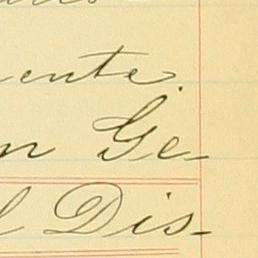 ente.
n Ge-
l Dis-